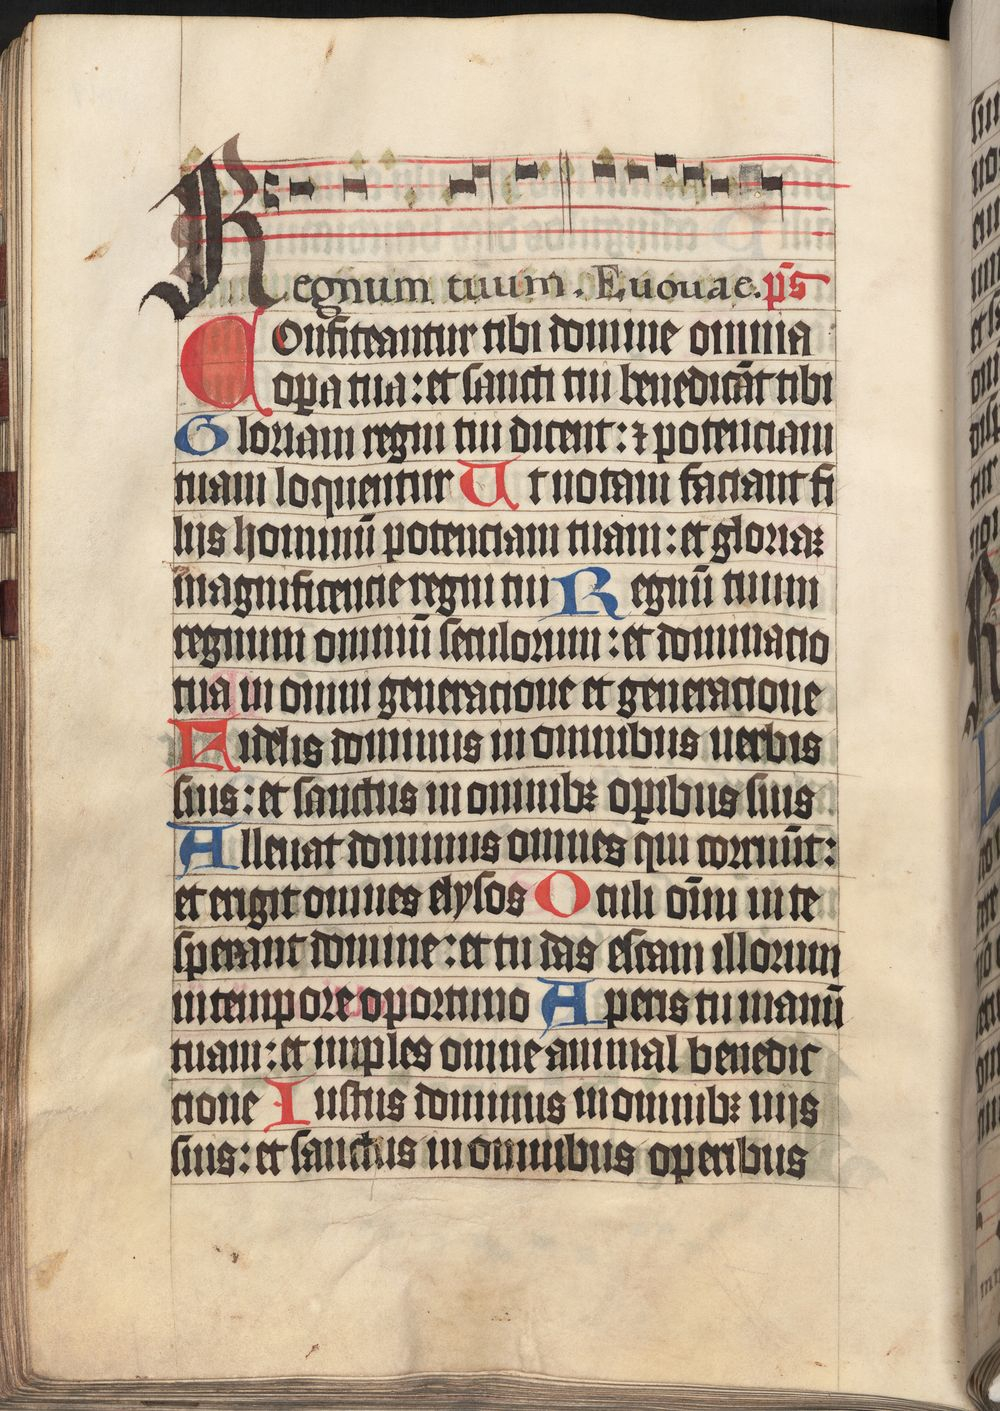 Regnum tuum. Euouae. p̄s
Confiteantur tibi domine omnia
oꝑa tua: et sancti tui benedicāt tibi
Gloriam regni tui dicent: ⁊ potenciam
tuam loquentur Ut notam faciant fi
liis hominū potenciam tuam: et gloriaꝫ
magnificencie regni tui Regnū tuum
regnum omniū seculorum: et dominacio
tua in omni generacione et generacione
Fidelis dominus in omnibus uerbis
suis: et sanctus in omnibꝫ oꝑibus suis
Alleuat dominus omnes qui corruūt:
et erigit omnes elysos Oculi oīm in te
sperant domine: et tu das escam illorum
in tempore oportuno Aperis tu manū
tuam: et imples omne animal benedic
cione Iustus dominus in omnibꝫ uiis
suis: et sanctus in omnibus operibus